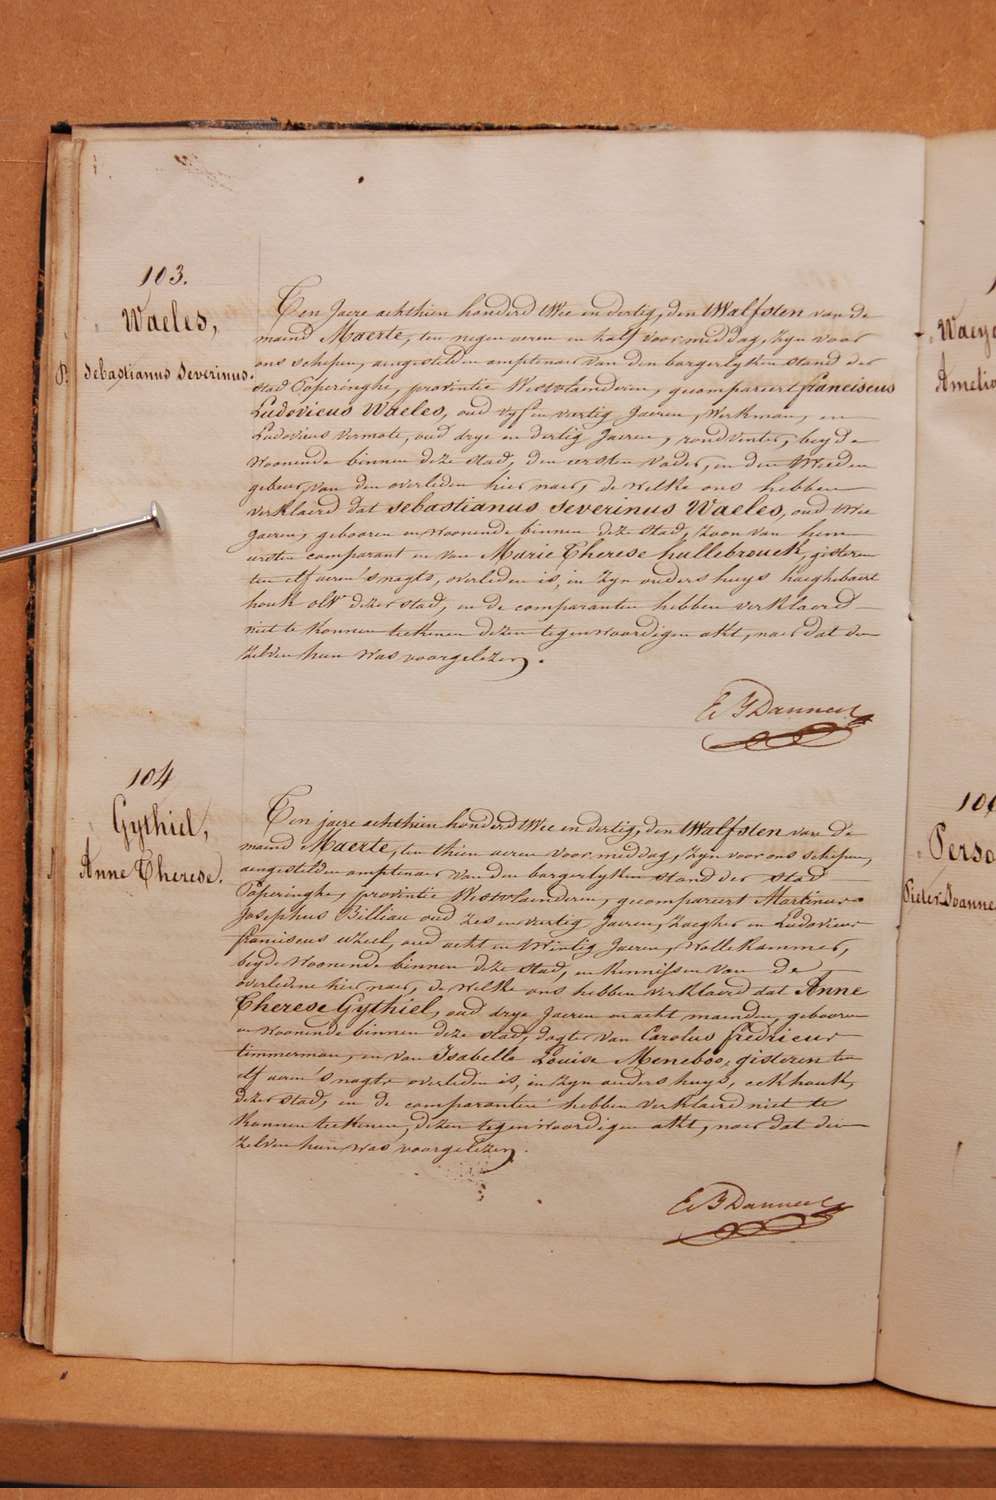 103.
Waeles,
Sebastianus Severinus.
Ten Jaere achthien honderd twee en dertig, den twalfsten van de
maend Maerte, ten negen ueren en half voormiddag, zyn voor
ons schepen, aengestelden amptenaer van den borgerlyken stand der
stad Poperinghe, provintie Westvlaenderen, gecompareert franciscus
Ludovicus Waeles, oud vyf en viertig Jaeren, Werkman, en
Ludovicus Vermote, oud drye en dertig Jaeren, rondventer, beyde
woonende binnen deze stad, den eersten vader, en den tweeden
gebeur, van den overleden hier naer, de welke ons hebben
verklaerd dat Sebastianus Severinus Waeles, oud twee
Jaeren, gebooren en woonende binnen deze stad, zoon van hem
eersten comparant en van Marie Therese hallebrouck, gisteren
ten elf ueren 's nagts, overleden is, in zyn ouders huys haeghebaert
houk dezer stad, en de comparanten hebben verklaerd
niet te konnen teekenen dezen tegenwoordigen akt, naer dat den
zelven hun was voorgelezen.
104
Gythiel,
Anne Therese.
Ten jaere achthien honderd twee en dertig, den twalfsten van de
maend Maerte, ten thien ueren voormiddag, zyn voor ons schepen,
aengestelden amptenaer van den borgerlyken stand der stad
Poperinghe, provintie Westvlaenderen, gecompareert Martinus
Josephus Billiau oud zes en viertig Jaeren, zaegher en Ludovicus
franciscus oud acht en twintig Jaeren, Wollekammer,
beyde woonende binnen deze stad, en kennissen van de
overledene hier naer, de welke ons hebben verklaerd dat Anne
Therese Gythiel, oud drye Jaeren en acht maenden, gebooren
en woonende binnen deze stad, dogter van Carolus fredricus
timmerman, en van Isabelle Louise Menebos, gisteren ten
elf ueren 's nagts overleden is, in zyn ouders huys, eekhouk,
dezer stad, en de comparanten hebben verklaerd niet te
konnen teekenen, dezen tegenwoordigen akt, naer dat den
zelven hun was voorgelezen.